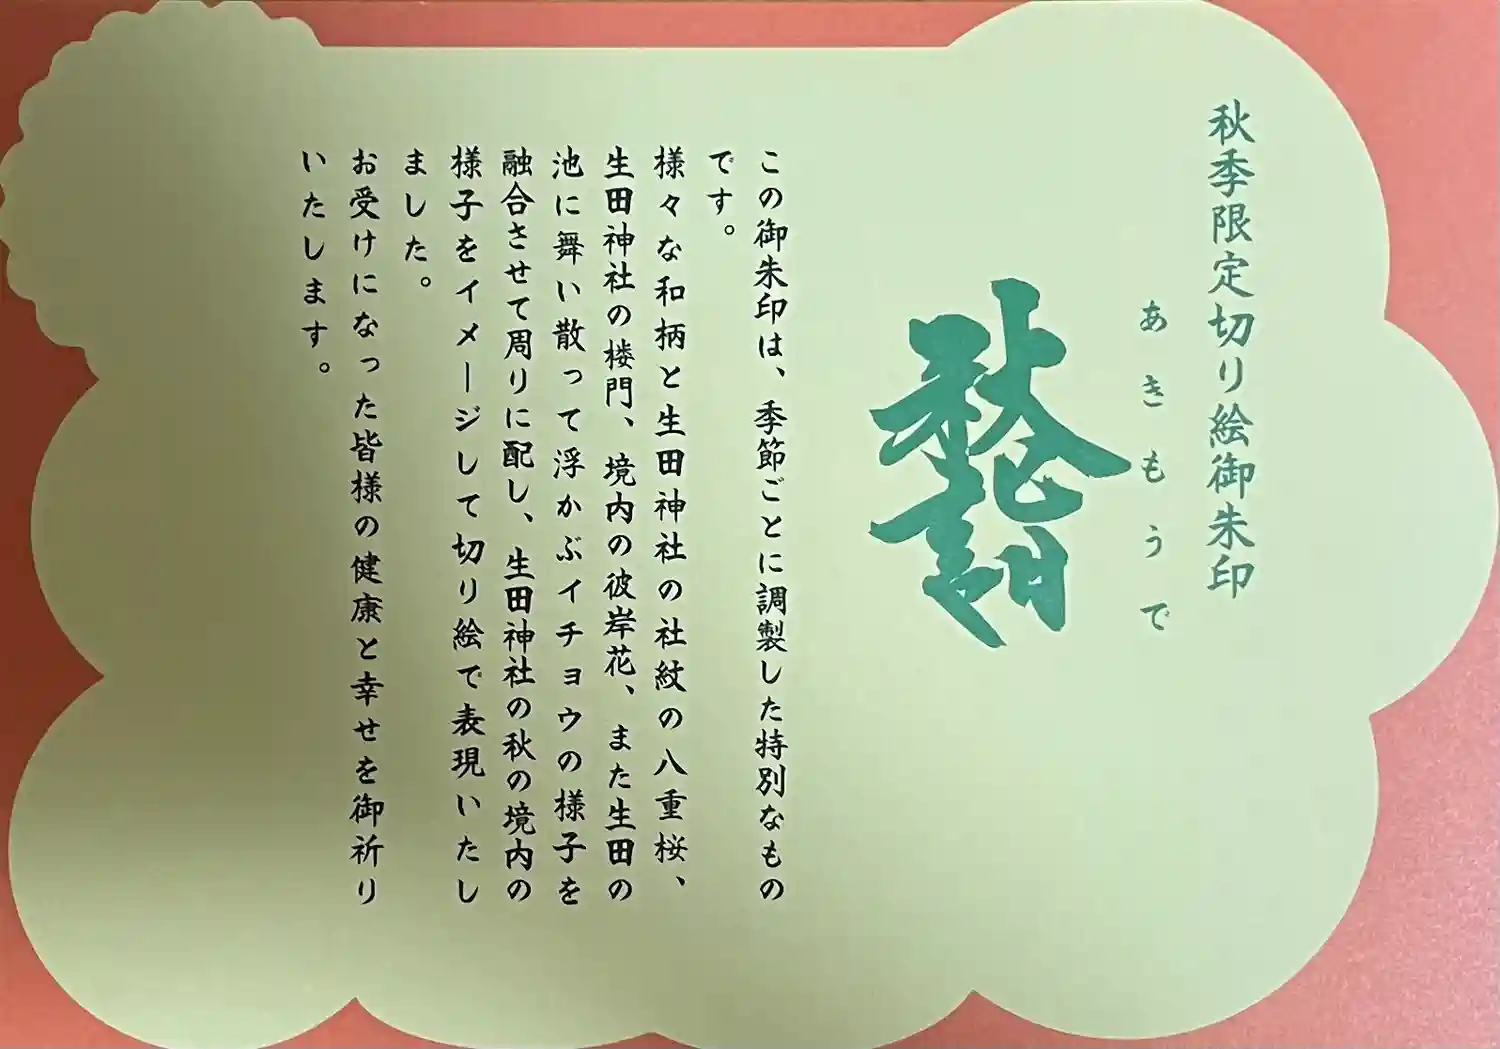 秋季限定切り絵御朱印
あきもうで
この御朱印は、季節ごとに調製した特別なもの
です。
様々な和柄と生田神社の社紋の八重桜、
生田神社の楼門、境内の彼岸花、また生田の
池に舞い散って浮かぶイチョウの様子を
融合させて周りに配し、生田神社の秋の境内の
様子をイメージして切り絵で表現いたし
ました。
お受けになった皆様の健康と幸せを御祈り
いたします。